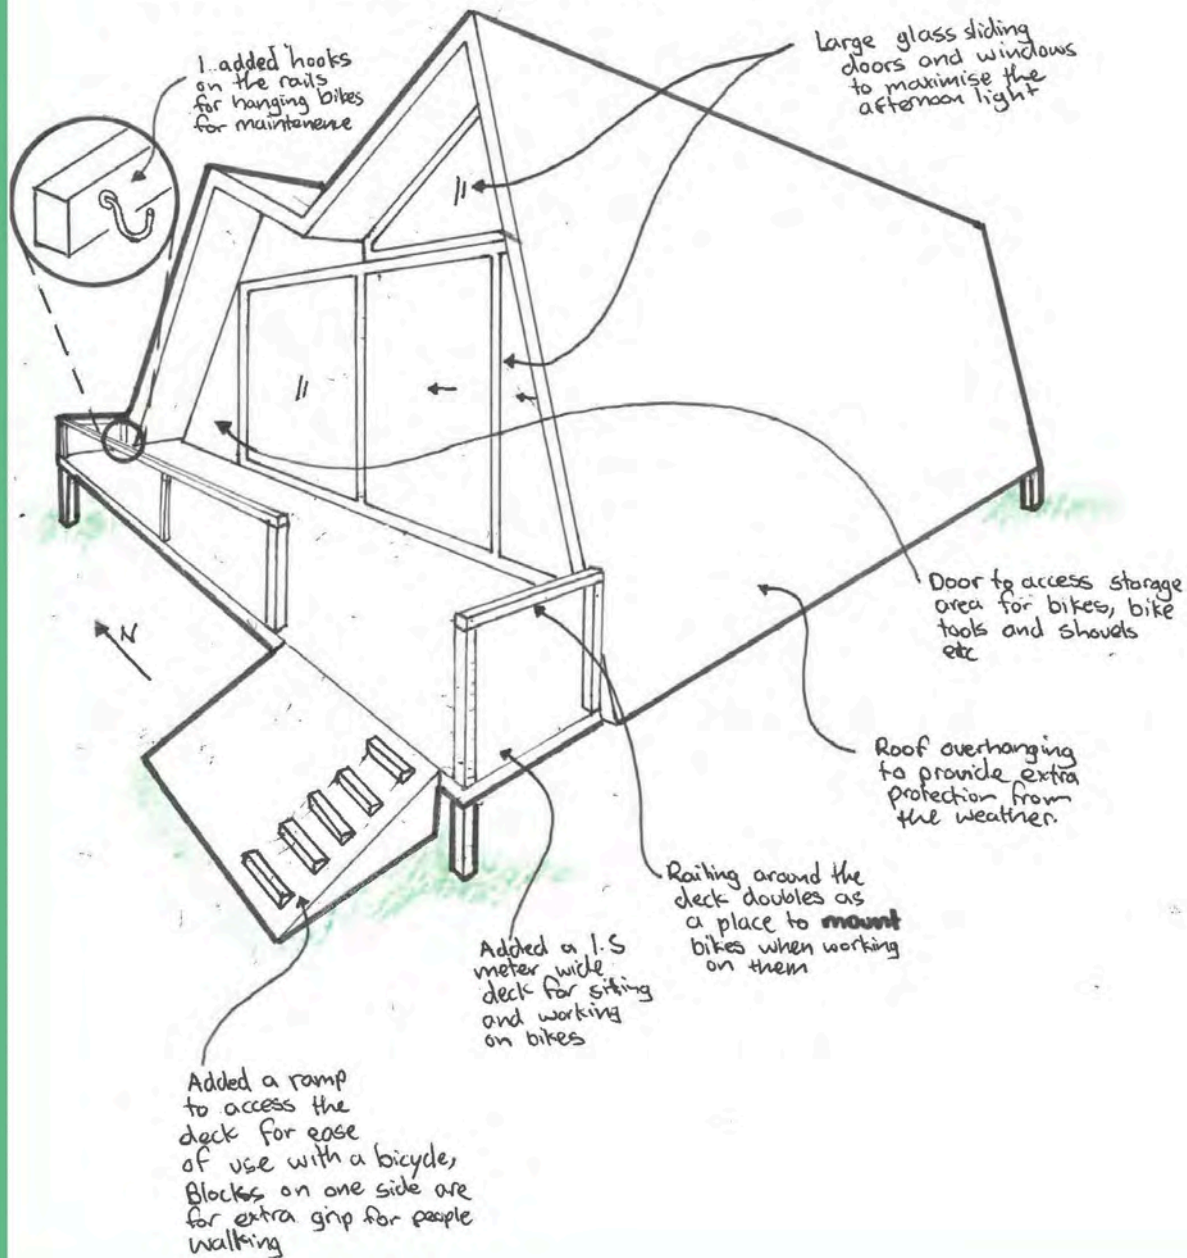 1..added hooks
on the rails
for hanging bikes
for maintenence
Large glass sliding
doors and windows
to maximise the
afternoon light
N
Door to access storage
area for bikes, bike
tools and shovels
etc
Roof overhanging
to provide extra
protection from
the weather.
Railing around the
deck doubles as
a place to mount
bikes when working
on them
Added a 1.5
meter wide
deck for sitting
and working
on bikes
Added a ramp
to access the
deck for ease
of use with a bicycle,
Blocks on one side are
for extra grip for people
walking